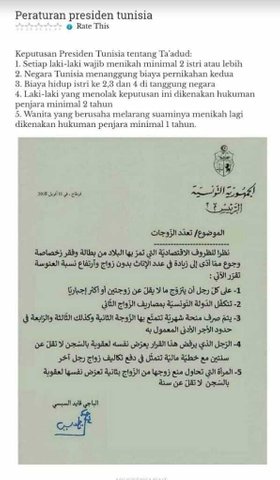 Peraturan presiden tunisia
Rate This
Keputusan Presiden Tunisia tentang Ta'adud:
1. Setiap laki-laki wajib menikah minimal 2 istri atau lebih
2. Negara Tunisia menanggung biaya pernikahan kedua
3. Biaya hidup istri ke 2,3 dan 4 di tanggung negara
4. Laki-laki yang menolak keputusan ini dikenakan hukuman
penjara minimal 2 tahun
5. Wanita yang berusaha melarang suaminya menikah lagi
dikenakan hukuman penjara minimal 1 tahun.
الجمهورية التونسية
الموضوع/ تعدّد الزوجات
نظرا للظروف الاقتصاديّة التي تمرّ بها البلاد من بطالة وفقر وخصاصة
وجوع ممّا أدّى إلى زيادة في عدد الإناث بدون زواج وارتفاع نسبة العنوسة
تقرّر الآتي:
1- على كلّ رجل أن يتزوّج ما لا يقلّ عن زوجتين أو أكثر إجباريّا
2- تتكفّل الدولة التونسيّة بمصاريف الزواج الثّاني
3- يتمّ صرف منحة شهريّة تتمتّع بها الزوجة الثانية وكذلك الثّالثة والرّابعة في
حدود الأجر الأدنى المعمول به
4- الرّجل الذي يرفض هذا القرار يعرّض نفسه لعقوبة بالسّجن لا تقلّ عن
سنتين مع خطيّة ماليّة تتمثّل في دفع تكاليف زواج رجل آخر
5- المرأة التي تحاول منع زوجها من الزّواج بثانية تعرّض نفسها لعقوبة
بالسّجن لا تقلّ عن سنة
الباجي قايد السبسي